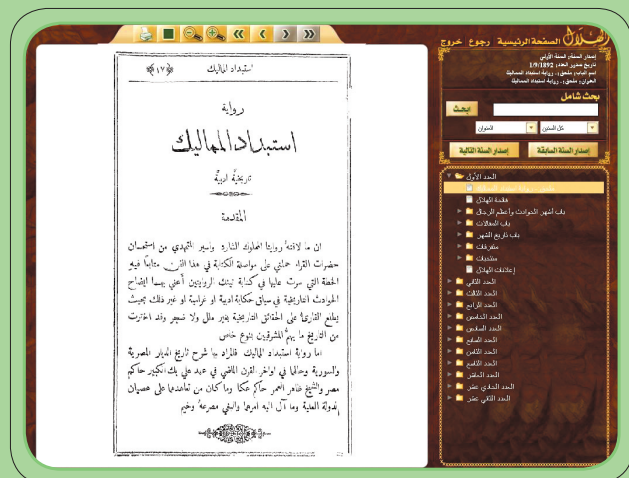 الهلال الصفحة الرئيسية رجوع خروج
إصدار السنة: السنة الأولى
تاريخ صدور العدد: 1/9/1892
اسم الباب: ملحق: رواية استبداد المماليك
العنوان: ملحق: رواية استبداد المماليك
بحث شامل
ابحث
كل السنين
العنوان
إصدار السنة السابقة
إصدار السنة التالية
العدد الأول
ملحق: رواية استبداد المماليك
فاتحة الهلال
باب أشهر الحوادث وأعظم الرجال
باب المقالات
باب تاريخ الشهر
متفرقات
منتخبات
إعلانات الهلال
العدد الثاني
العدد الثالث
العدد الرابع
العدد الخامس
العدد السادس
العدد السابع
العدد الثامن
العدد التاسع
العدد العاشر
العدد الحادي عشر
العدد الثاني عشر
استبداد المماليك
﴿١٧﴾
رواية
استبداد المماليك
تاريخية ادبية
المقدمة
ان ما لاقته روايتا المملوك الشارد واسير المتمهدي من استحسان
حضرات القراء حملني على مواصلة الكتابة في هذا الفن متابعًا فيهِ
الخطة التي سرت عليها في كتابة تينك الروايتين أعني بهما ايضاح
الحوادث التاريخية في سياق حكاية ادبية او غرامية او غير ذلك بحيث
يطلع القارئ على الحقائق التاريخية بغير ملل ولا ضجر وقد اخترت
من التاريخ ما يهمُّ المشرقيين بنوع خاص
اما رواية استبداد المماليك فالمراد بها شرح تاريخ الديار المصرية
والسورية وحالها في اواخر القرن الماضي في عهد علي بك الكبير حاكم
مصر والشيخ ظاهر العمر حاكم عكا وما كان من تعاهدهما على عصيان
الدولة العلية وما آل اليه امرهما والسفي مصرعهُ وخيم